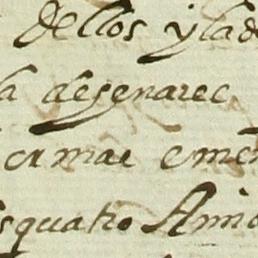 dellos y lad
a desenarec
ar mar emen
squatro Anim